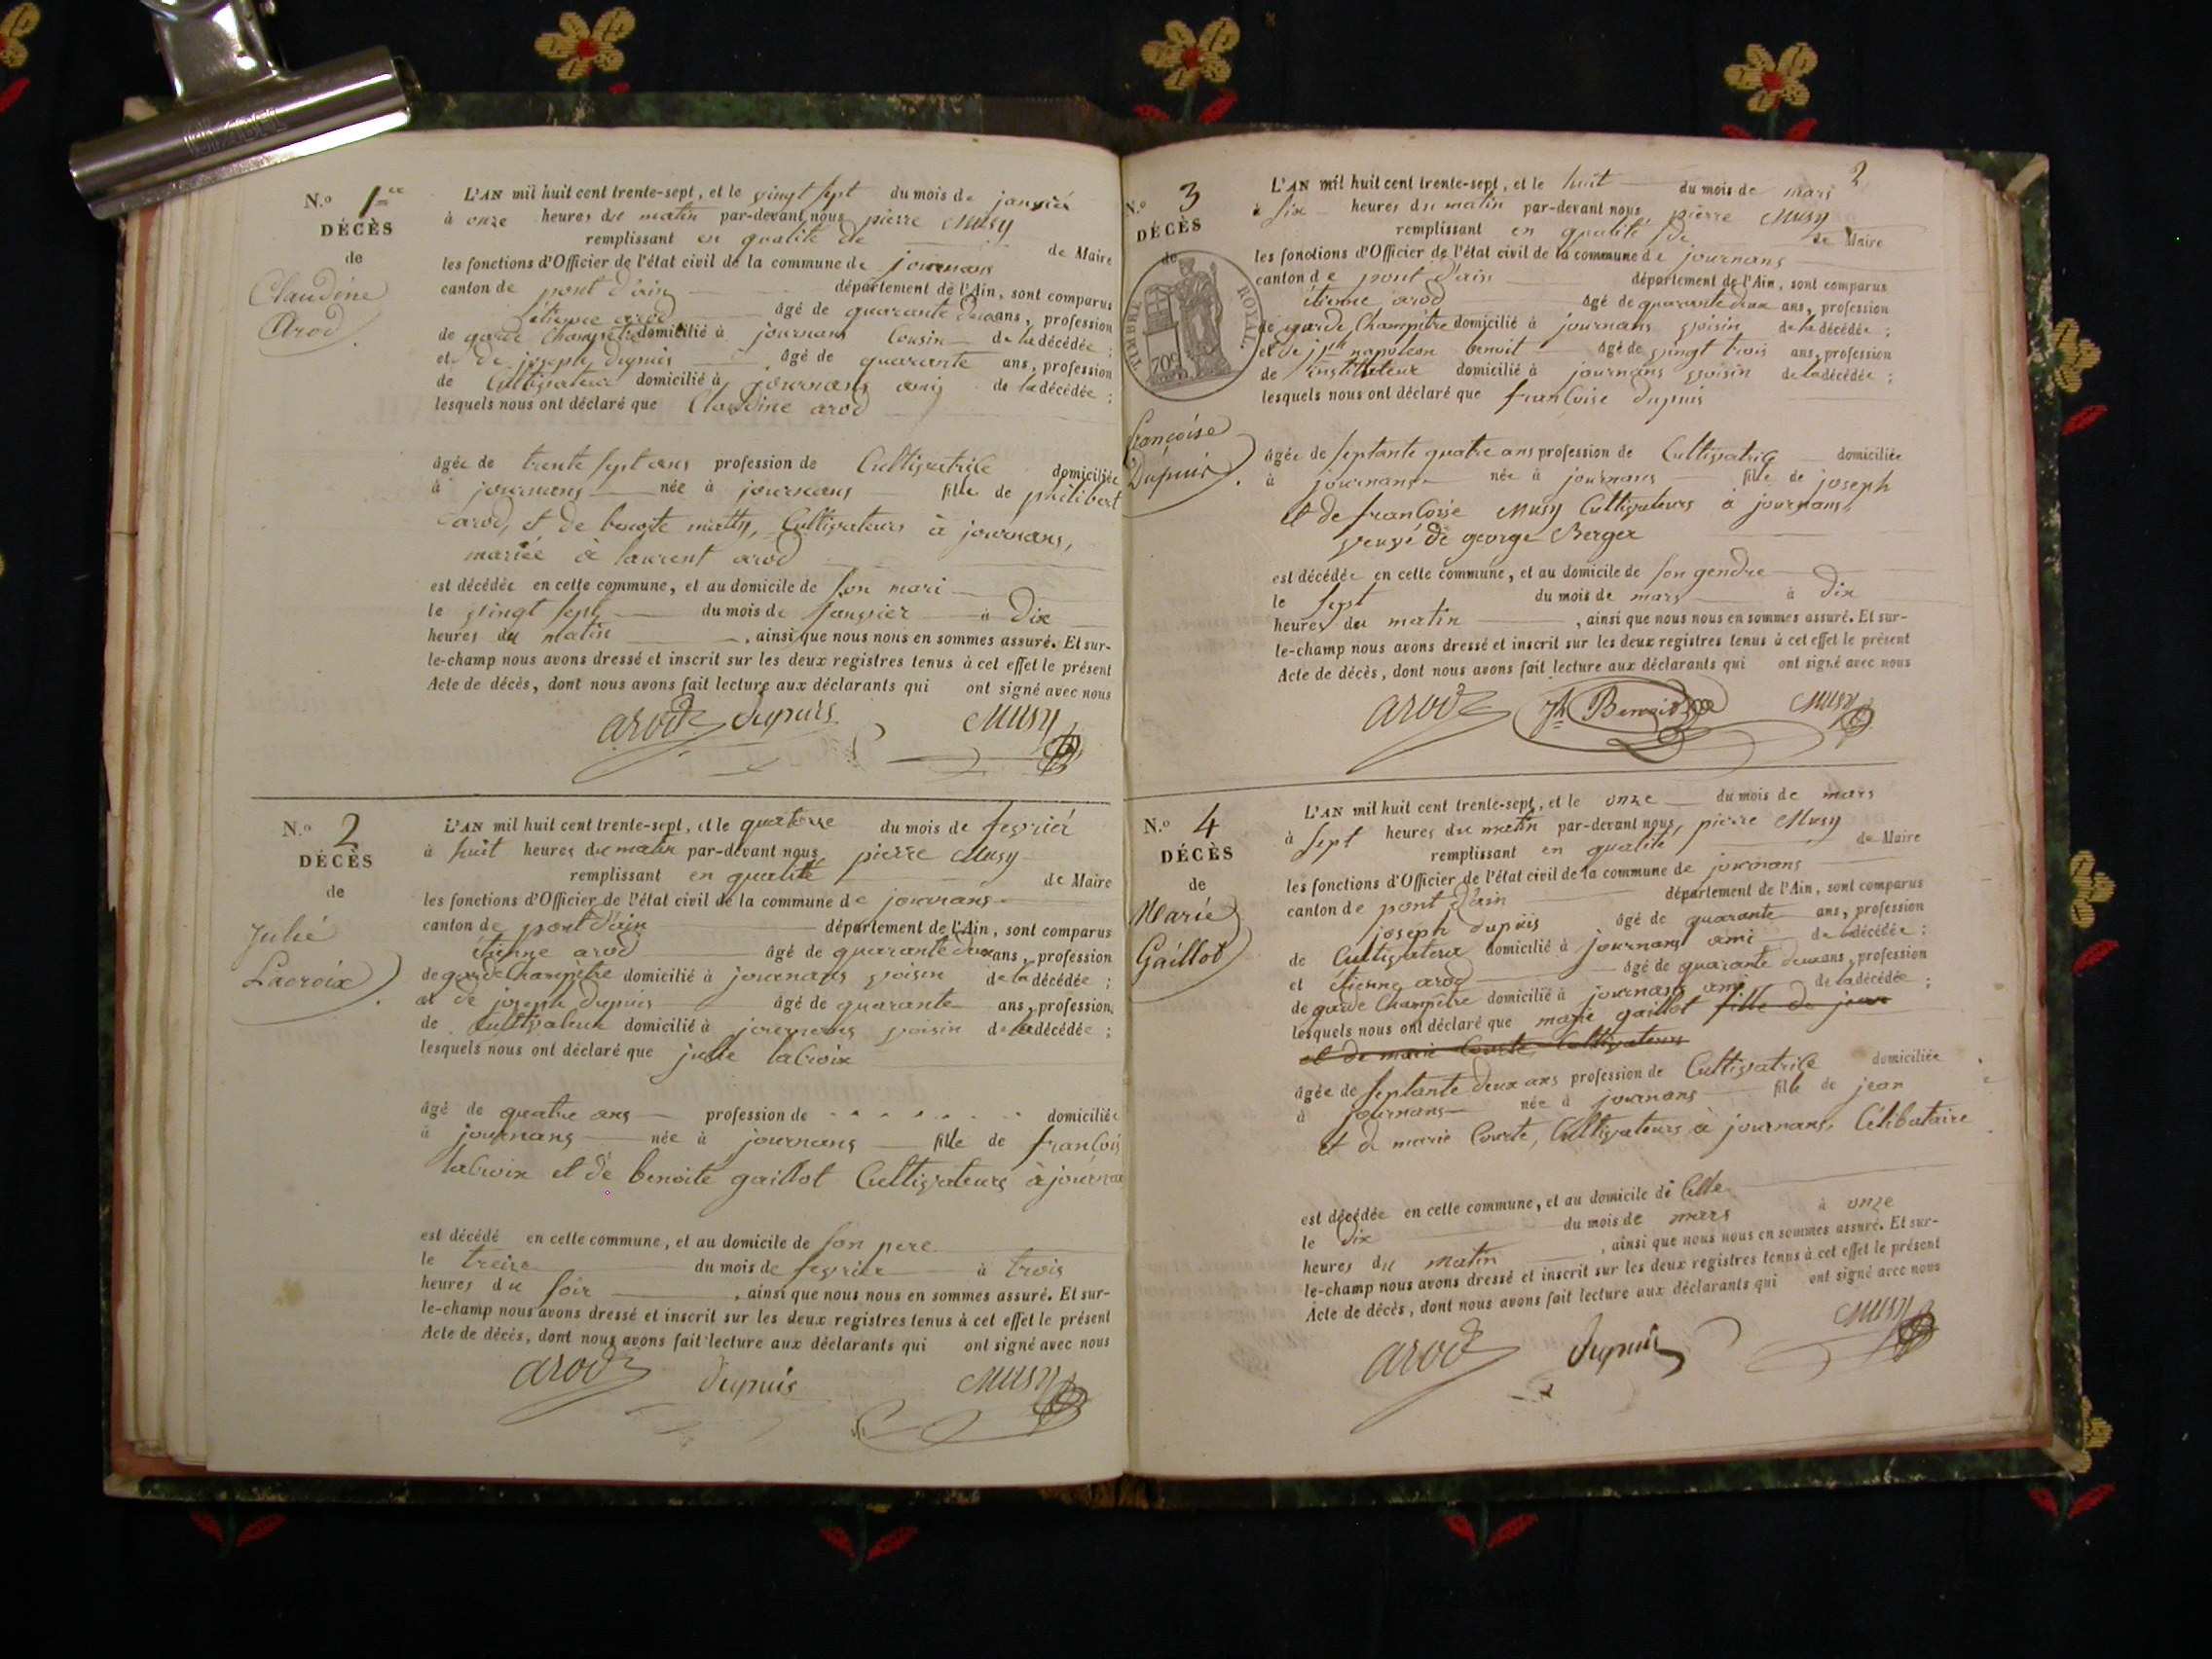 N.º 1er
DÉCÈS
de
Claudine
Arod
L'AN mil huit cent trente-sept, et le vingt sept du mois de janvier
à onze heures du matin par-devant nous pierre Musy
remplissant en qualité de de Maire
les fonctions d'Officier de l'état civil de la commune de journans
canton de pont d'ain département de l'Ain, sont comparus
étienne arod âgé de quarante deux ans, profession
de garde Champêtre domicilié à journans Cousin de la décédée ;
et de joseph dupuis âgé de quarante ans, profession
de Cultivateur domicilié à journans ami de la décédée ;
lesquels nous ont déclaré que Claudine arod
âgée de trente sept ans profession de Cultivatrice domiciliée
à journans née à journans fille de philibert
arod, et de benoite Cultivateurs à journans,
mariée à laurent arod
est décédée en cette commune, et au domicile de son mari
le vingt sept du mois de janvier à dix
heures du matin , ainsi que nous nous en sommes assuré. Et sur-
le-champ nous avons dressé et inscrit sur les deux registres tenus à cet effet le présent
Acte de décès, dont nous avons fait lecture aux déclarants qui ont signé avec nous
arod dupuis Musy
N.º 2
DÉCÈS
de
Julie
Lacroix
L'AN mil huit cent trente-sept, et le quatorze du mois de fevrier
à huit heures du matin par-devant nous pierre Musy
remplissant en qualité de Maire
les fonctions d'Officier de l'état civil de la commune de journans
canton de pont d'ain département de l'Ain, sont comparus
étienne arod âgé de quarante deux ans, profession
de garde Champêtre domicilié à journans voisin de la décédée ;
et de joseph dupuis âgé de quarante ans, profession
de Cultivateur domicilié à journans voisin de la décédée ;
lesquels nous ont déclaré que julie laCroix
âgé de quatre ans profession de domiciliée
à journans née à journans fille de françois
laCroix et de benoite gaillot Cultivateurs à journans
est décédé en cette commune, et au domicile de son pere
le treize du mois de fevrier à trois
heures du soir , ainsi que nous nous en sommes assuré. Et sur-
le-champ nous avons dressé et inscrit sur les deux registres tenus à cet effet le présent
Acte de décès, dont nous avons fait lecture aux déclarants qui ont signé avec nous
arod dupuis Musy
2
N.º 3
DÉCÈS
de
TIMBRE ROYAL.
70c
françoise
Dupuis
L'AN mil huit cent trente-sept, et le huit du mois de mars
à six heures du matin par-devant nous pierre Musy
remplissant en qualité de de Maire
les fonctions d'Officier de l'état civil de la commune de journans
canton de pont d'ain département de l'Ain, sont comparus
étienne arod âgé de quarante deux ans, profession
de garde Champêtre domicilié à journans voisin de la décédée ;
et de jph napoléon benoit âgé de vingt trois ans, profession
de instituteur domicilié à journans voisin de la décédée ;
lesquels nous ont déclaré que franCoise dupuis
âgée de septante quatre ans profession de Cultivatrice domiciliée
à journans née à journans fille de joseph
et de franCoise Musy Cultivateurs à journans,
veuve de george Berger
est décédée en cette commune, et au domicile de son gendre
le sept du mois de mars à dix
heures du matin , ainsi que nous nous en sommes assuré. Et sur-
le-champ nous avons dressé et inscrit sur les deux registres tenus à cet effet le présent
Acte de décès, dont nous avons fait lecture aux déclarants qui ont signé avec nous
arod Jh Benoit Musy
N.º 4
DÉCÈS
de
Marie
Gaillot
L'AN mil huit cent trente-sept, et le onze du mois de mars
à sept heures du matin par-devant nous, pierre Musy
remplissant en qualité de Maire
les fonctions d'Officier de l'état civil de la commune de journans
canton de pont d'ain département de l'Ain, sont comparus
joseph dupuis âgé de quarante ans, profession
de Cultivateur domicilié à journans ami de la décédée ;
et étienne arod âgé de quarante deux ans, profession
de garde Champêtre domicilié à journans ami de la décédée ;
lesquels nous ont déclaré que marie gaillot fille de jean
et de marie Courte, Cultivateurs
âgée de septante deux ans profession de Cultivatrice domiciliée
à journans née à journans fille de jean
et de marie Courte, Cultivateurs à journans, Célibataire
est décédée en cette commune, et au domicile de Celle
le dix du mois de mars à onze
heures du matin , ainsi que nous nous en sommes assuré. Et sur-
le-champ nous avons dressé et inscrit sur les deux registres tenus à cet effet le présent
Acte de décès, dont nous avons fait lecture aux déclarants qui ont signé avec nous
arod dupuis Musy